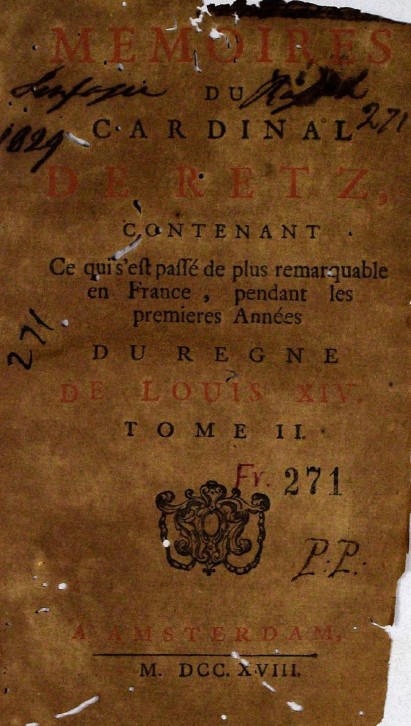 MEMOIRES
DU
CARDINAL
271
DE RETZ,
1829
CONTENANT
Ce qui s'est passé de plus remarquable
en France, pendant les
premieres Années
271
DU REGNE
DE LOUIS XIV.
TOME II.
Fr. 271
P.P.
A AMSTERDAM,
M. DCC. XVIII.